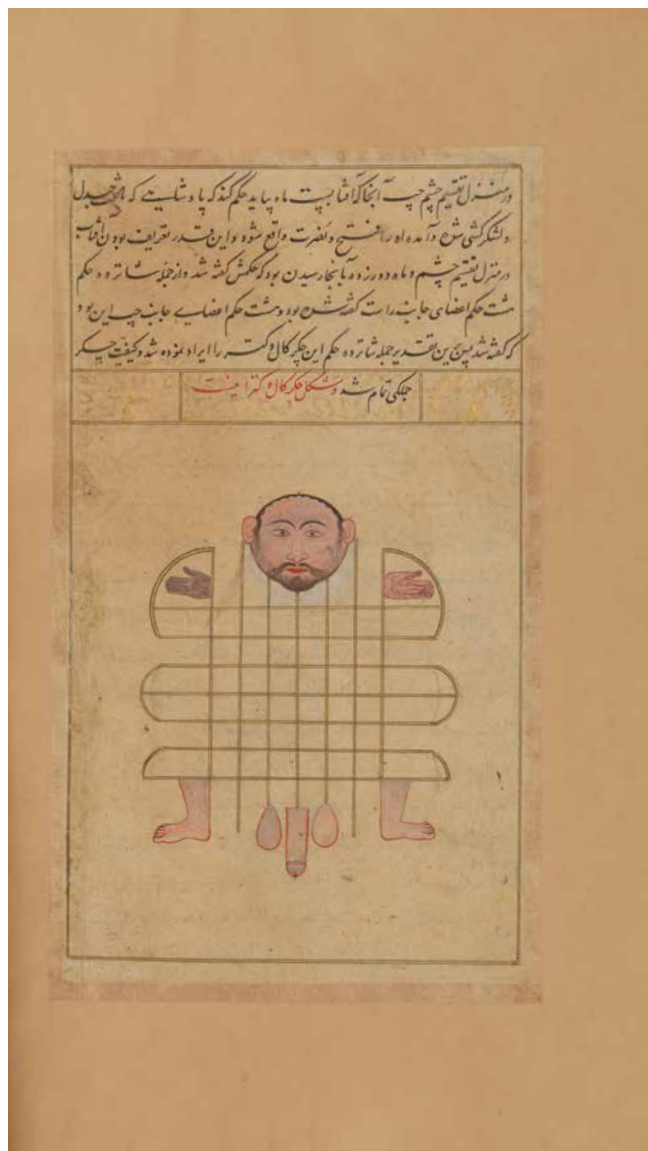 در منزل تقسیم چشم چپ آنجا که آفتابست ماه بیاید حکم کند که پادشاهے که
و لشکرکشی شده و آمده او را فتح و نصرت واقع شود و این قدر تعریف بودن آفتاب
در منزل تقسیم چشم و ماه دور زده بآنجا رسیدن بود که حکمش گفته شد و از جمله شانزده حکم
هشت حکم اعضای جانب راست گفته شده بود و هشت حکم اعضایے جانب چپ این بود
که گفته شد پس بدین تقدیر جمله شانزده حکم این چکر کال را ایراد نموده شد و کیفیت چکر
جنکی تمام شد و شکل چکر کال اینست